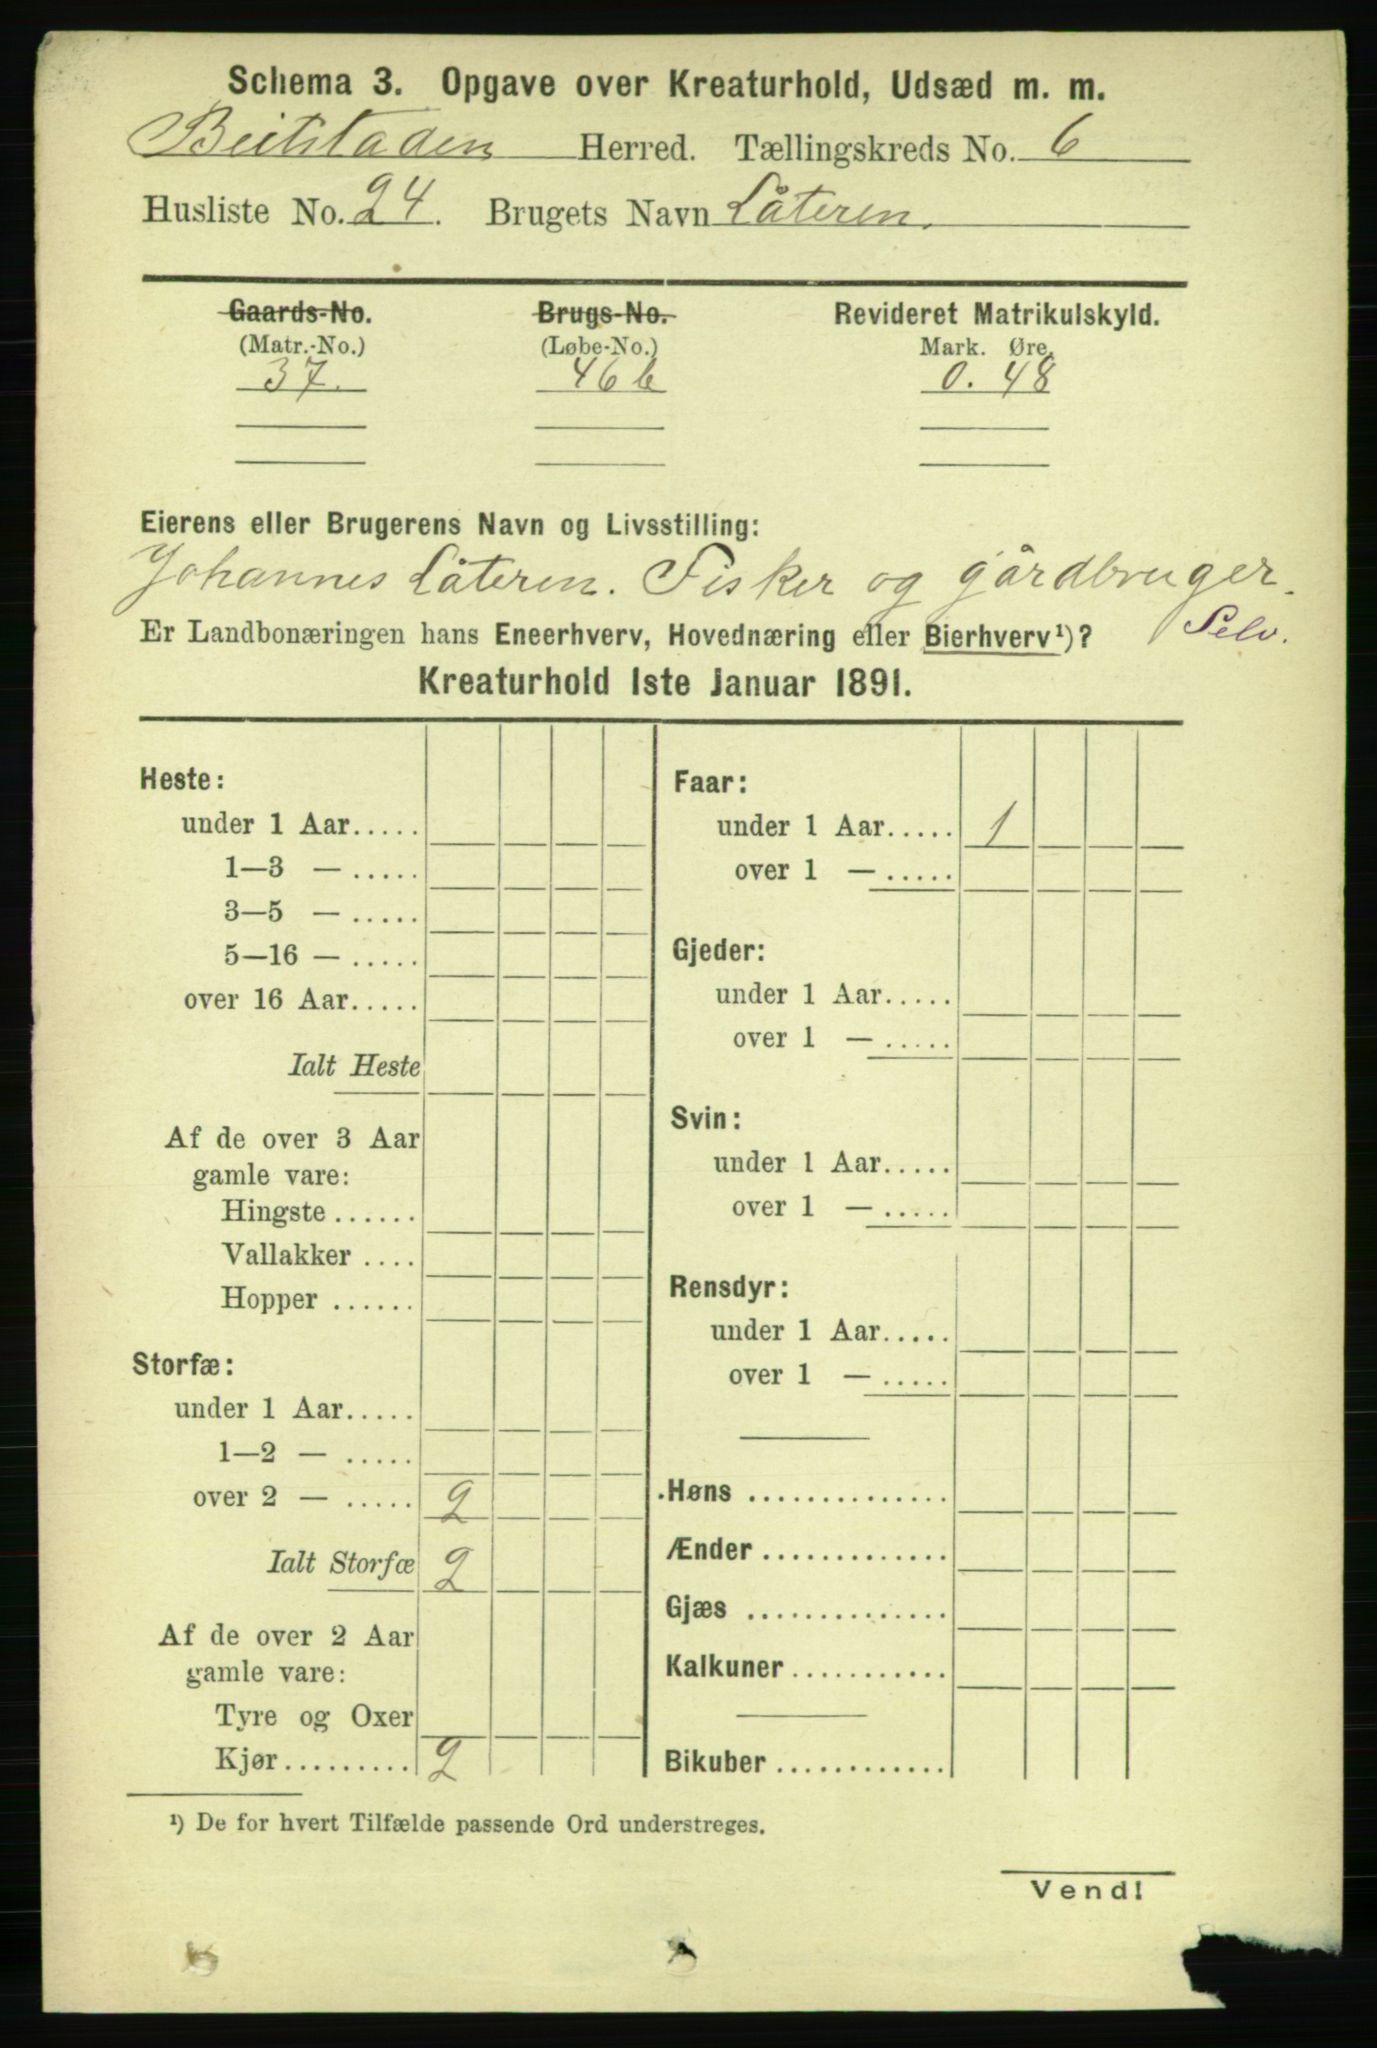 Schema 3. Opgave over Kreaturhold, Udsæd m. m.
Beitstaden Herred. Tællingskreds No. 6
Husliste No. 24. Brugets Navn Låteren.
Gaards-No. Brugs-No. Revideret Matrikulskyld.
(Matr.-No.) (Løbe-No.) Mark. Øre.
37. 46 b 0. 48
Eierens eller Brugerens Navn og Livsstilling:
Johannes Låteren. Fisker og gårdbruger.
Selv.
Er Landbonæringen hans Eneerhverv, Hovednæring eller Bierhverv¹)?
Kreaturhold 1ste Januar 1891.
Heste:
under 1 Aar.....
1—3 — .....
3—5 — .....
5—16 — .....
over 16 Aar.....
Ialt Heste
Af de over 3 Aar
gamle vare:
Hingste ......
Vallakker ....
Hopper ......
Storfæ:
under 1 Aar.....
1—2 — .....
over 2 — ..... 2
Ialt Storfæ 2
Af de over 2 Aar
gamle vare:
Tyre og Oxer
Kjør......... 2
Faar:
under 1 Aar..... 1
over 1 — .....
Gjeder:
under 1 Aar.....
over 1 — .....
Svin:
under 1 Aar.....
over 1 — .....
Rensdyr:
under 1 Aar.....
over 1 — .....
Høns ..............
Ænder .............
Gjæs ..............
Kalkuner...........
Bikuber ............
¹) De for hvert Tilfælde passende Ord understreges.
Vend!